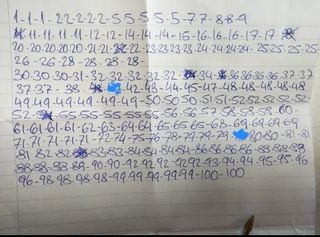 1-1-1-2-2-2-2-5-5-5-5-5-7-7-8-8-9
11-11-11-11-12-12-14-14-14-15-16-16-16-17-17-
20-20-20-20-20-21-21-22-22-23-23-23-24-24-24-24-25-25-25-25-
26-26-28-28-28-28-
30-30-30-31-31-32-32-32-32-32-34-36-36-36-36-37-37
37-37-38-42-42-43-44-45-47-48-48-48-48-48
49-49-49-49-49-49-50-50-50-51-51-52-52-52-52-52
52-55-55-55-55-55-56-56-57-58-58-58-60
61-61-61-61-62-63-64-64-65-65-65-68-69-69-69-69
71-71-71-71-71-72-74-75-76-78-79-79-79-80-80-81-81
81-82-82-83-83-84-84-84-86-86-86-86-88-88-88
88-88-88-89-90-90-92-92-92-92-93-94-94-95-95-96
96-98-98-98-98-99-99-99-99-99-100-100